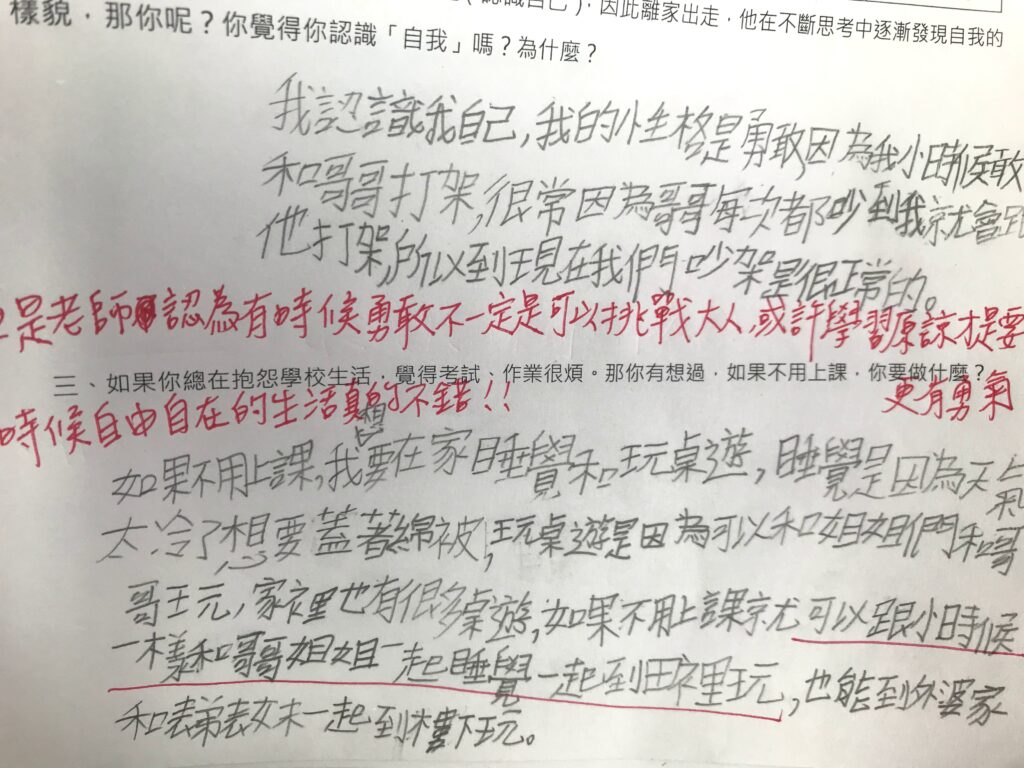 認識自己),因此離家出走,他在不斷思考中逐漸發現自我的
樣貌,那你呢?你覺得你認識「自我」嗎?為什麼?
我認識我自己,我的性格是勇敢,因為我小時候敢
和哥哥打架,很常因為哥哥每次都吵到我就會跟
他打架,所以到現在我們吵架是很正常的。
是老師認為有時候勇敢不一定是可以挑戰大人,或許學習原諒才是要
更有勇氣
三、如果你總在抱怨學校生活,覺得考試、作業很煩。那你有想過,如果不用上課,你要做什麼?
時候自由自在的生活真的不錯!!
如果不用上課,我想要在家睡覺和玩桌遊,睡覺是因為天氣
太冷了想要蓋著綿被,玩桌遊是因為可以和姐姐們和哥
哥玩,家裡也有很多桌遊,如果不用上課就可以跟小時候
一樣和哥哥姐姐一起睡覺一起到田裡玩,也能到外婆家
和表弟表妹一起到樓下玩。